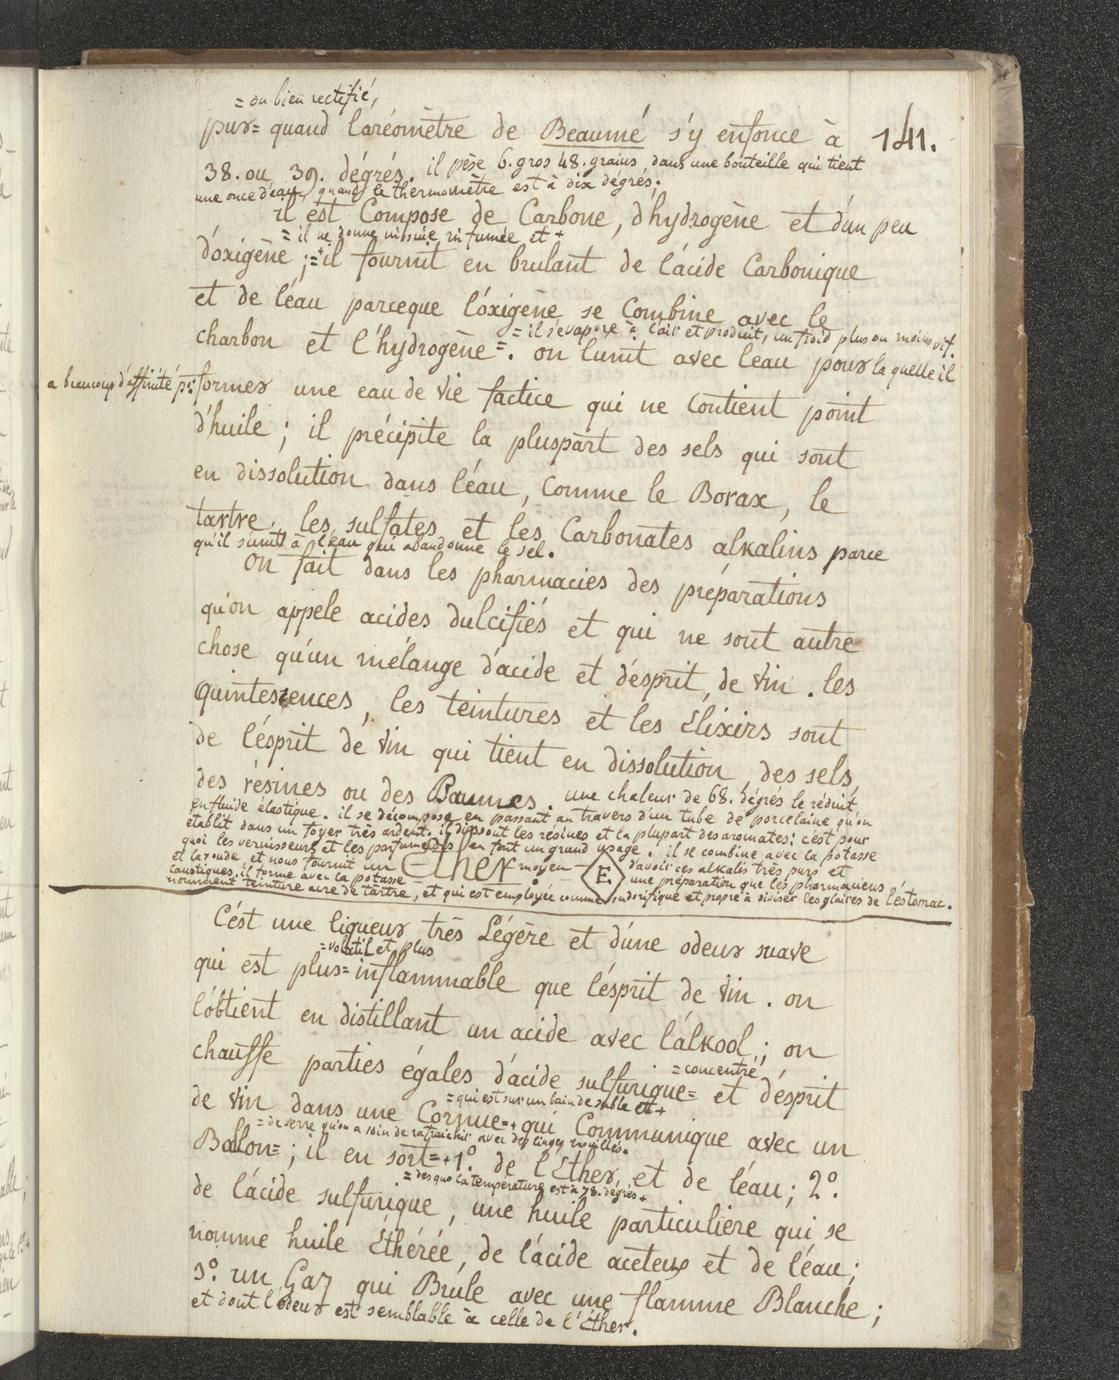 = ou bien rectifié,
pur= quand l'aréomètre de Beaumé s'y enfonce à 141.
38. ou 39. dégrés. il pèse 6. gros 48. grains, dans une bouteille qui tient
une once d'eau, quand le thermomètre est à dix dégrés.
il est Composé de Carbone, d'hydrogène et d'un peu
= il ne donne ni suie, ni fumée et +
d'oxigène ;=+il fournit en brulant de l'acide Carbonique
et de l'éau parceque l'óxigène se Combine avec le
= il s'evapore à l'air et produit, un froid plus ou moins vif.
charbon et l'hydrogène=. on l'unit avec l'eau pour la quelle il
a beaucoup d'affinité pr: former une eau de vie factice qui ne contient point
d'huile ; il précipite la pluspart des sels qui sont
en dissolution dans l'éau, Comme le Borax, le
tartre, les sulfates et les Carbonates alkalins parce
qu'il s'unit à l'éau qui abandonne le sel.
On fait dans les pharmacies des préparations
qu'on appele acides dulcifiés et qui ne sont autre
chose qu'un mélange d'acide et d'ésprit de vin. les
quintescences, les teintures et les Elixirs sont
de l'ésprit de vin qui tient en dissolution des sels,
des résines ou des Baumes. une chaleur de 68. dégrés le réduit
en fluide élastique. il se décompose en passant au travers d'un tube de porcelaine qu'on
établit dans un foyer très ardent. il dissout les résines et la plupart des aromates: c'est pour
quoi les vernisseurs et les parfumeurs en font un grand usage. il se combine avec la potasse
et la soude, et nous fournit un moyen d'avoir ces alkalis très purs et
Ether. E.
caustiques, il forme avec la potasse une préparation que les pharmaciens
nomment teinture acre de tartre, et qui est employée comme sudorifique et propre à diviser les glaires de l'éstomac.
C'ést une liqueur très Légère et d'une odeur suave
=volatil et plus
qui est plus= inflammable que l'ésprit de vin. on
l'óbtient en distillant un acide avec l'álkool ; on
=concentré
chauffe parties égales d'acide sulfurique= et d'ésprit
=qui est sur un bain de sable et+
de vin dans une Cornue=+ qui Communique avec un
=de verre qu'on a soin de rafraichir avec des linges mouillés.
Ballon= ; il en sort=+1º. de l'Ether et de l'éau; 2º.
=des que la température est à 78. dégrés+
de l'ácide sulfurique, une huile particulière qui se
nomme huile Ethérée, de l'ácide aceteux et de l'éau;
3º. un Gaz qui Brule avec une flamme Blanche ;
et dont l'odeur est semblable à celle de l'Ether.